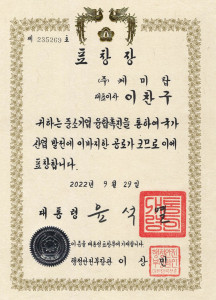 제 235269 호
표 창 장
(주) 케미탑
대표이사 이 찬 구
귀하는 중소기업 융합촉진을 통하여 국가
산업 발전에 이바지한 공로가 크므로 이에
표창합니다.
2022년 9월 29일
대통령 윤 석 열
이 증을 대통령표창부에 기재합니다.
행정안전부장관 이 상 민